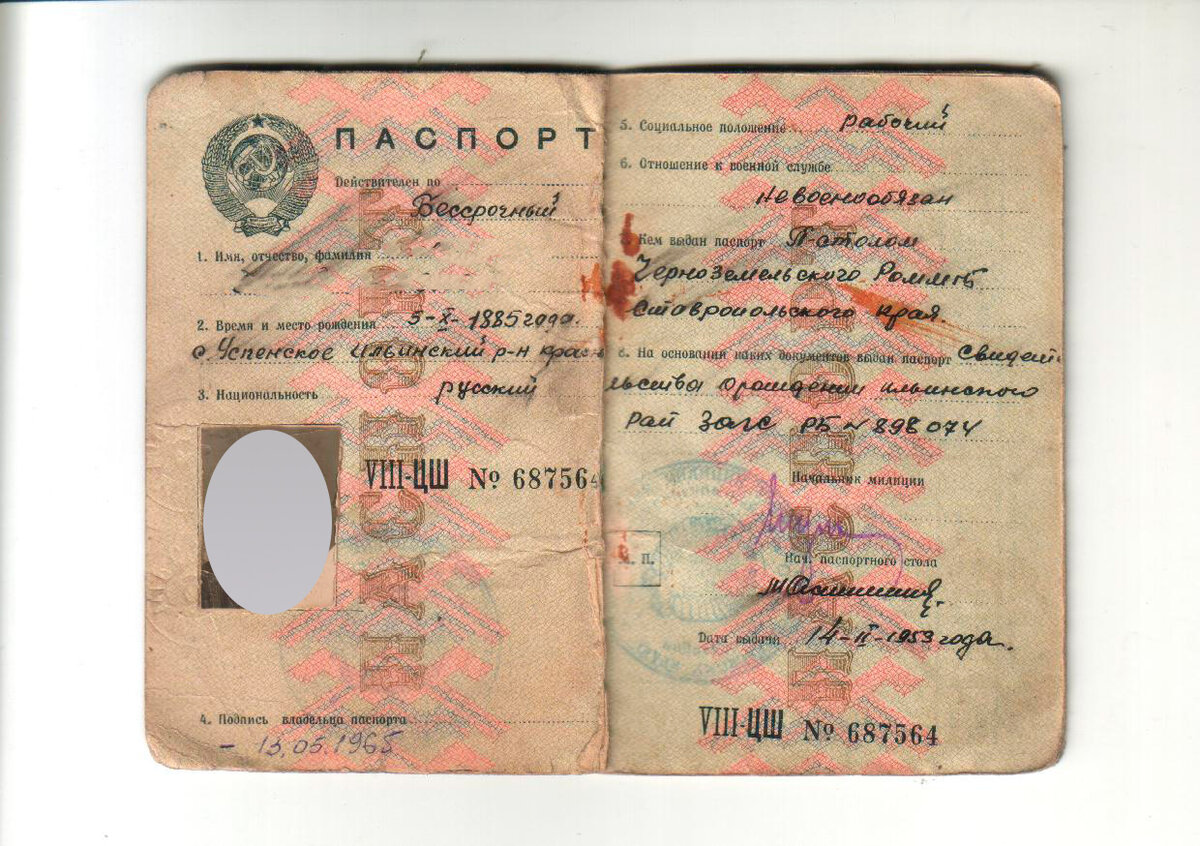 ПАСПОРТ
Действителен по
Бессрочный
1. Имя, отчество, фамилия
2. Время и место рождения 3-X-1885 года.
с. Успенское Ильинский р-н
3. Национальность русский
VIII-ЦШ № 687564
4. Подпись владельца паспорта
- 13.05.1965
5. Социальное положение рабочий
6. Отношение к военной службе
Невоеннообязан
7. Кем выдан паспорт П-столом
Черноземельского
Ставропольского края.
8. На основании каких документов выдан паспорт Свидете
льства о рождении Ильинского
рай Загс РБ № 898074
Начальник милиции
М. П.
Нач. паспортного стола
Дата выдачи 14-II-1953 года.
VIII-ЦШ № 687564
ПАСПОРТ